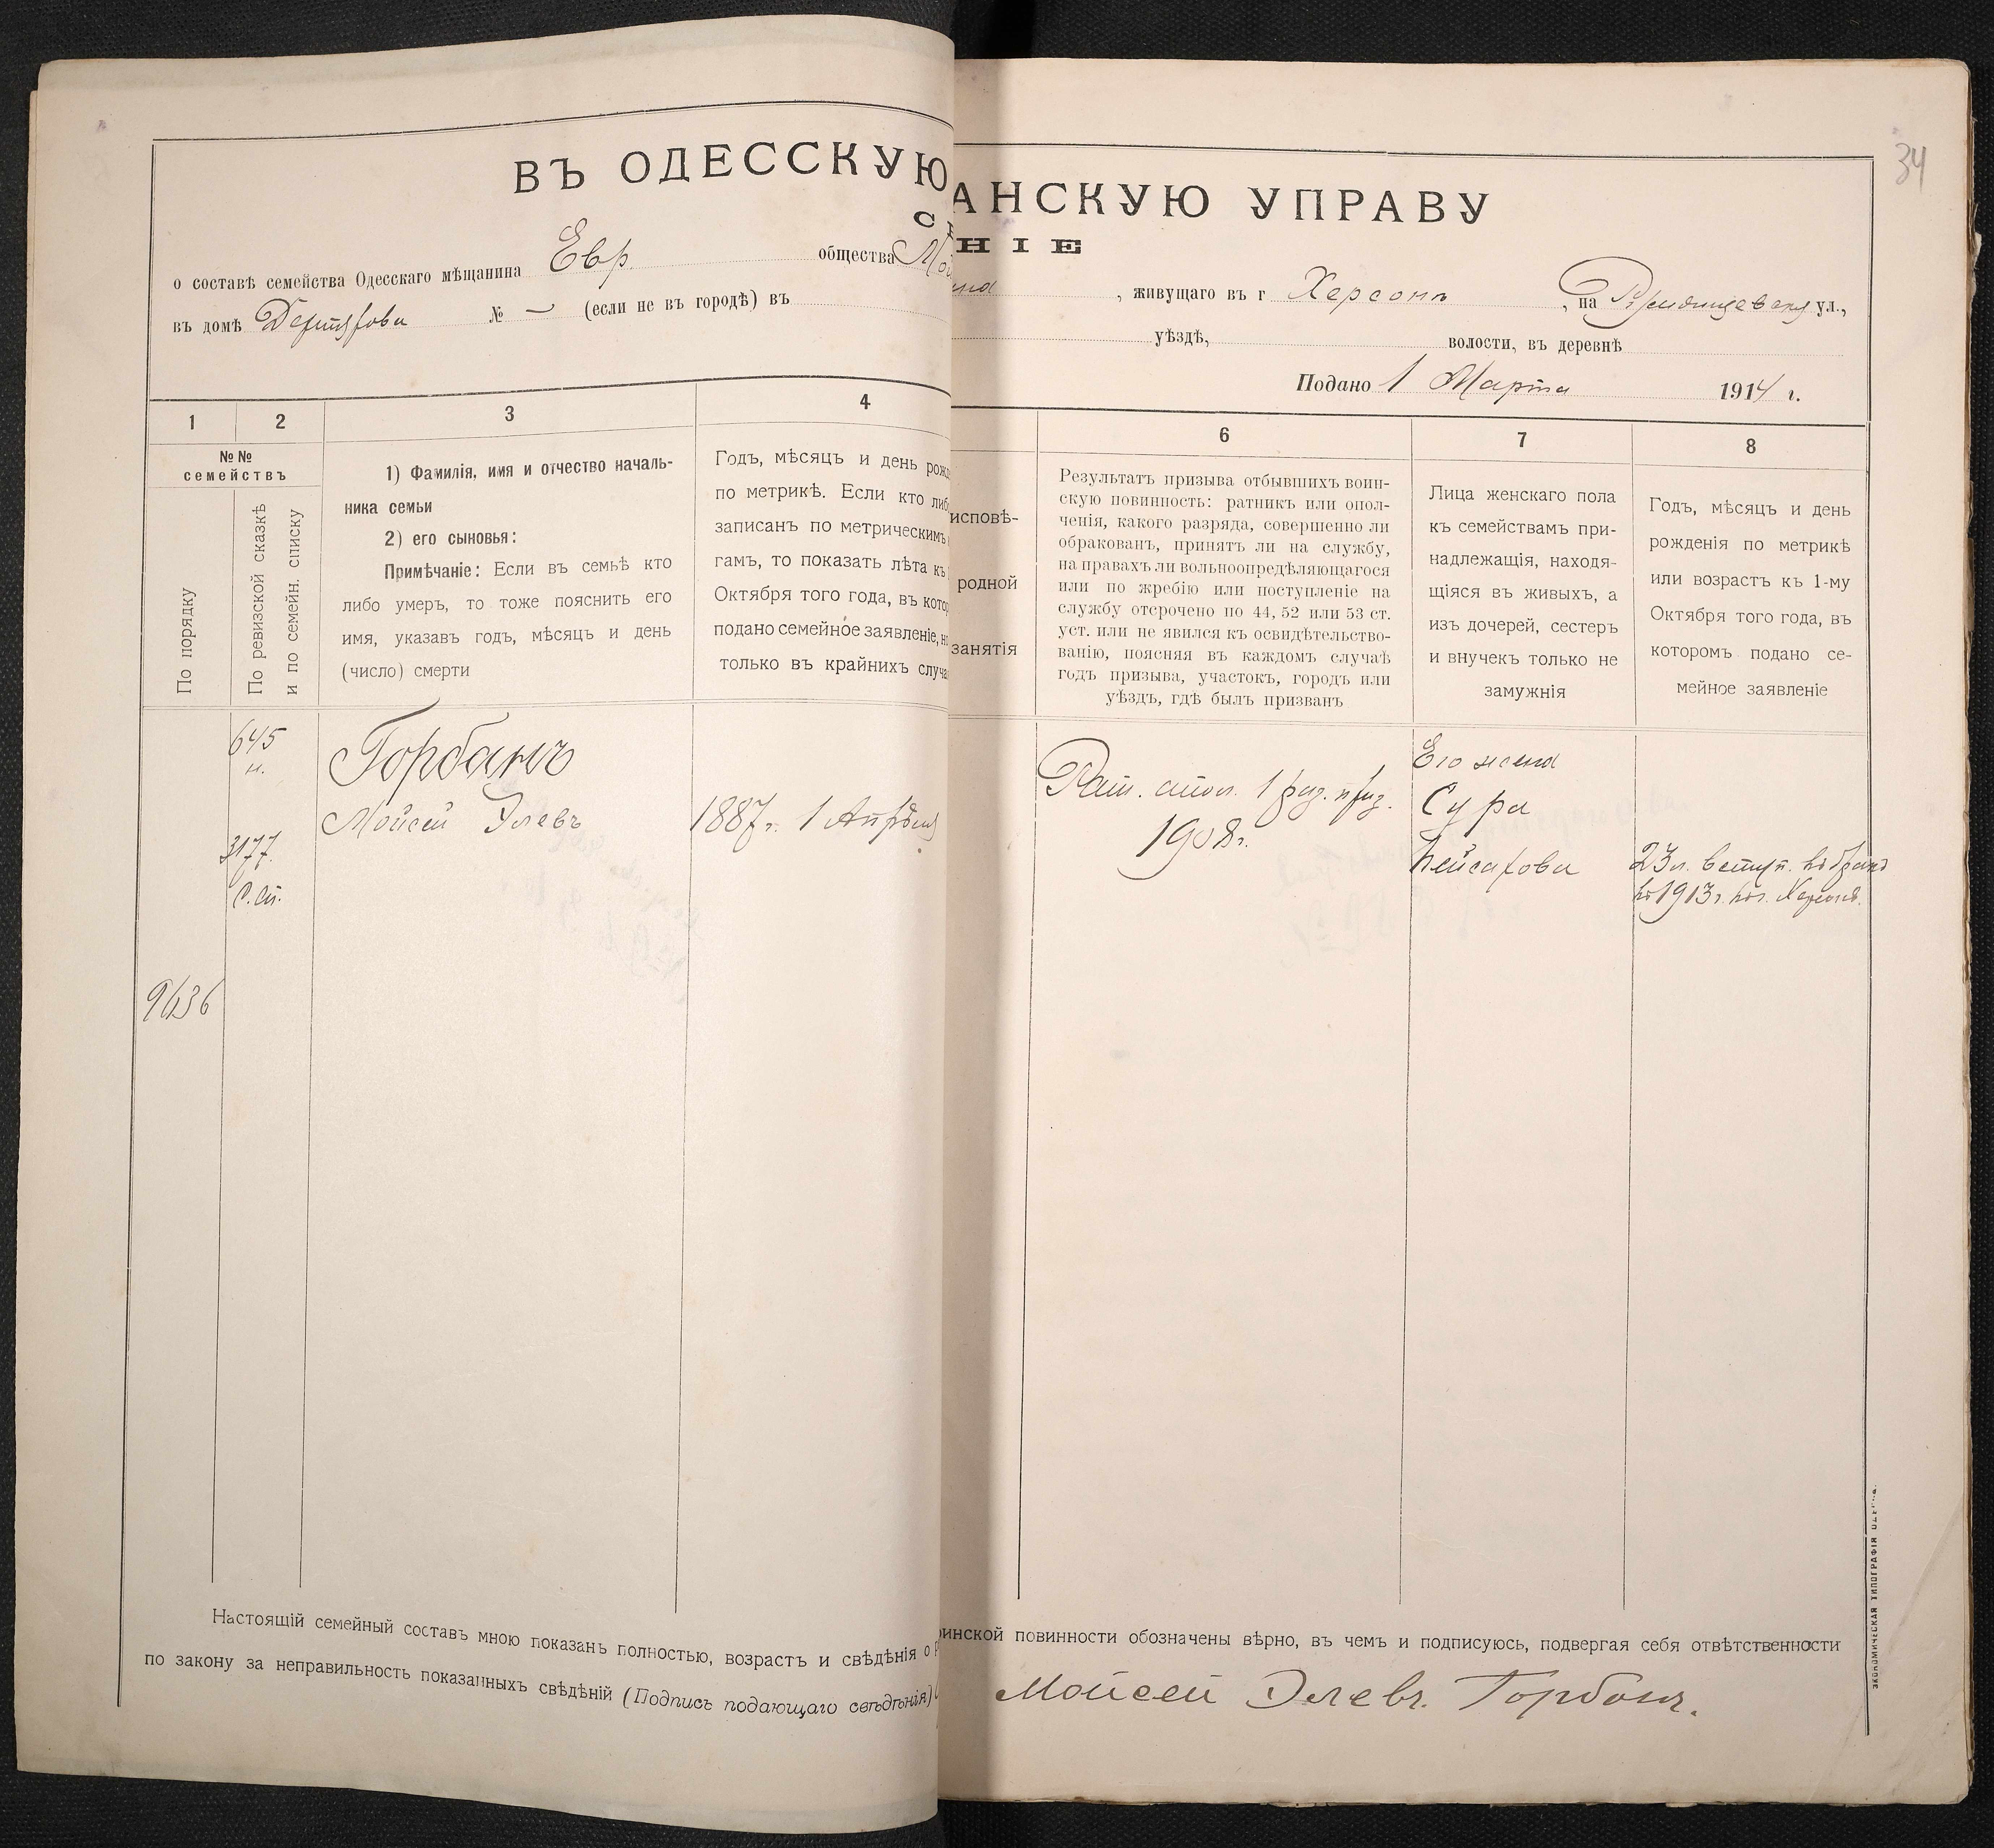 34
ВЪ ОДЕССКУЮ
АНСКУЮ УПРАВУ
НІЕ
о составѣ семейства Одесскаго мѣщанина Евр. общества
, живущаго въ г Херсонѣ , на ул.,
въ домѣ № — (если не въ городѣ) въ
уѣздѣ, волости, въ деревнѣ
Подано 1 Марта 1914 г.
1 2 3 4
№№
семействъ
По порядку
По ревизской сказкѣ
и по семейн. списку
1) Фамилія, имя и отчество началь-
ника семьи
2) его сыновья:
Примѣчаніе: Если въ семьѣ кто
либо умеръ, то тоже пояснить его
имя, указавъ годъ, мѣсяцъ и день
(число) смерти
Годъ, мѣсяцъ и день рож
по метрикѣ. Если кто либ
записанъ по метрическимъ
гамъ, то показать лѣта къ
Октября того года, въ кото
подано семейное заявленіе, н
только въ крайнихъ случа
исповѣ-
родной
занятія
6 7 8
Результатъ призыва отбывшихъ воин-
скую повинность: ратникъ или опол-
ченія, какого разряда, совершенно ли
обракованъ, принятъ ли на службу,
на правахъ ли вольноопредѣляющагося
или по жребію или поступленіе на
службу отсрочено по 44, 52 или 53 ст.
уст. или не явился къ освидѣтельство-
ванію, поясняя въ каждомъ случаѣ
годъ призыва, участокъ, городъ или
уѣздъ, гдѣ былъ призванъ
Лица женскаго пола
къ семействамъ при-
надлежащія, находя-
щіяся въ живыхъ, а
изъ дочерей, сестеръ
и внучекъ только не
замужнія
Годъ, мѣсяцъ и день
рожденія по метрикѣ
или возрастъ къ 1-му
Октября того года, въ
которомъ подано се-
мейное заявленіе
645
н.
3177.
9636
Горбанъ
Мойсей Элевъ
1887г. 1 Апрѣля
Рат. опол. 1 раз. приз.
1908г.
Его жена
Сура
Пейсахова
23 л. вступ. въ бракъ
въ 1913 г. въ г. Херсонѣ.
Настоящій семейный составъ мною показанъ полностью, возрастъ и свѣдѣнія о
инской повинности обозначены вѣрно, въ чемъ и подписуюсь, подвергая себя отвѣтственности
по закону за неправильность показанныхъ свѣдѣній (Подпись подающаго свѣдѣнія)
Мойсей Элевъ. Горбанъ.
ЭКОНОМИЧЕСКАЯ ТИПОГРАФІЯ